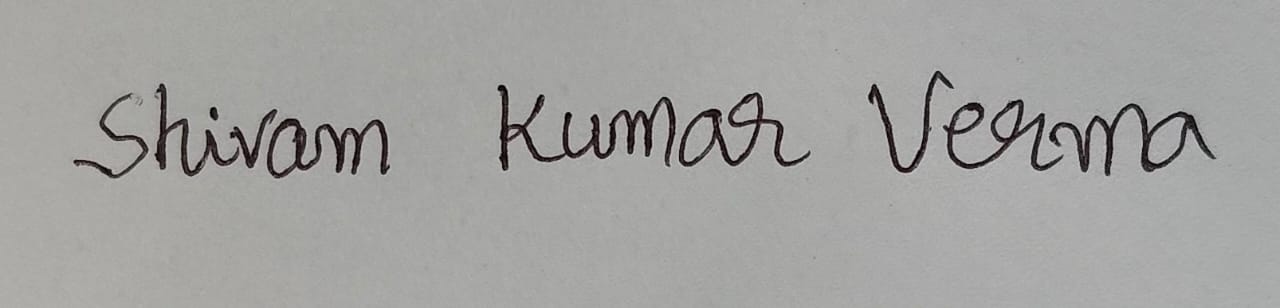 Shivam Kumar Verma